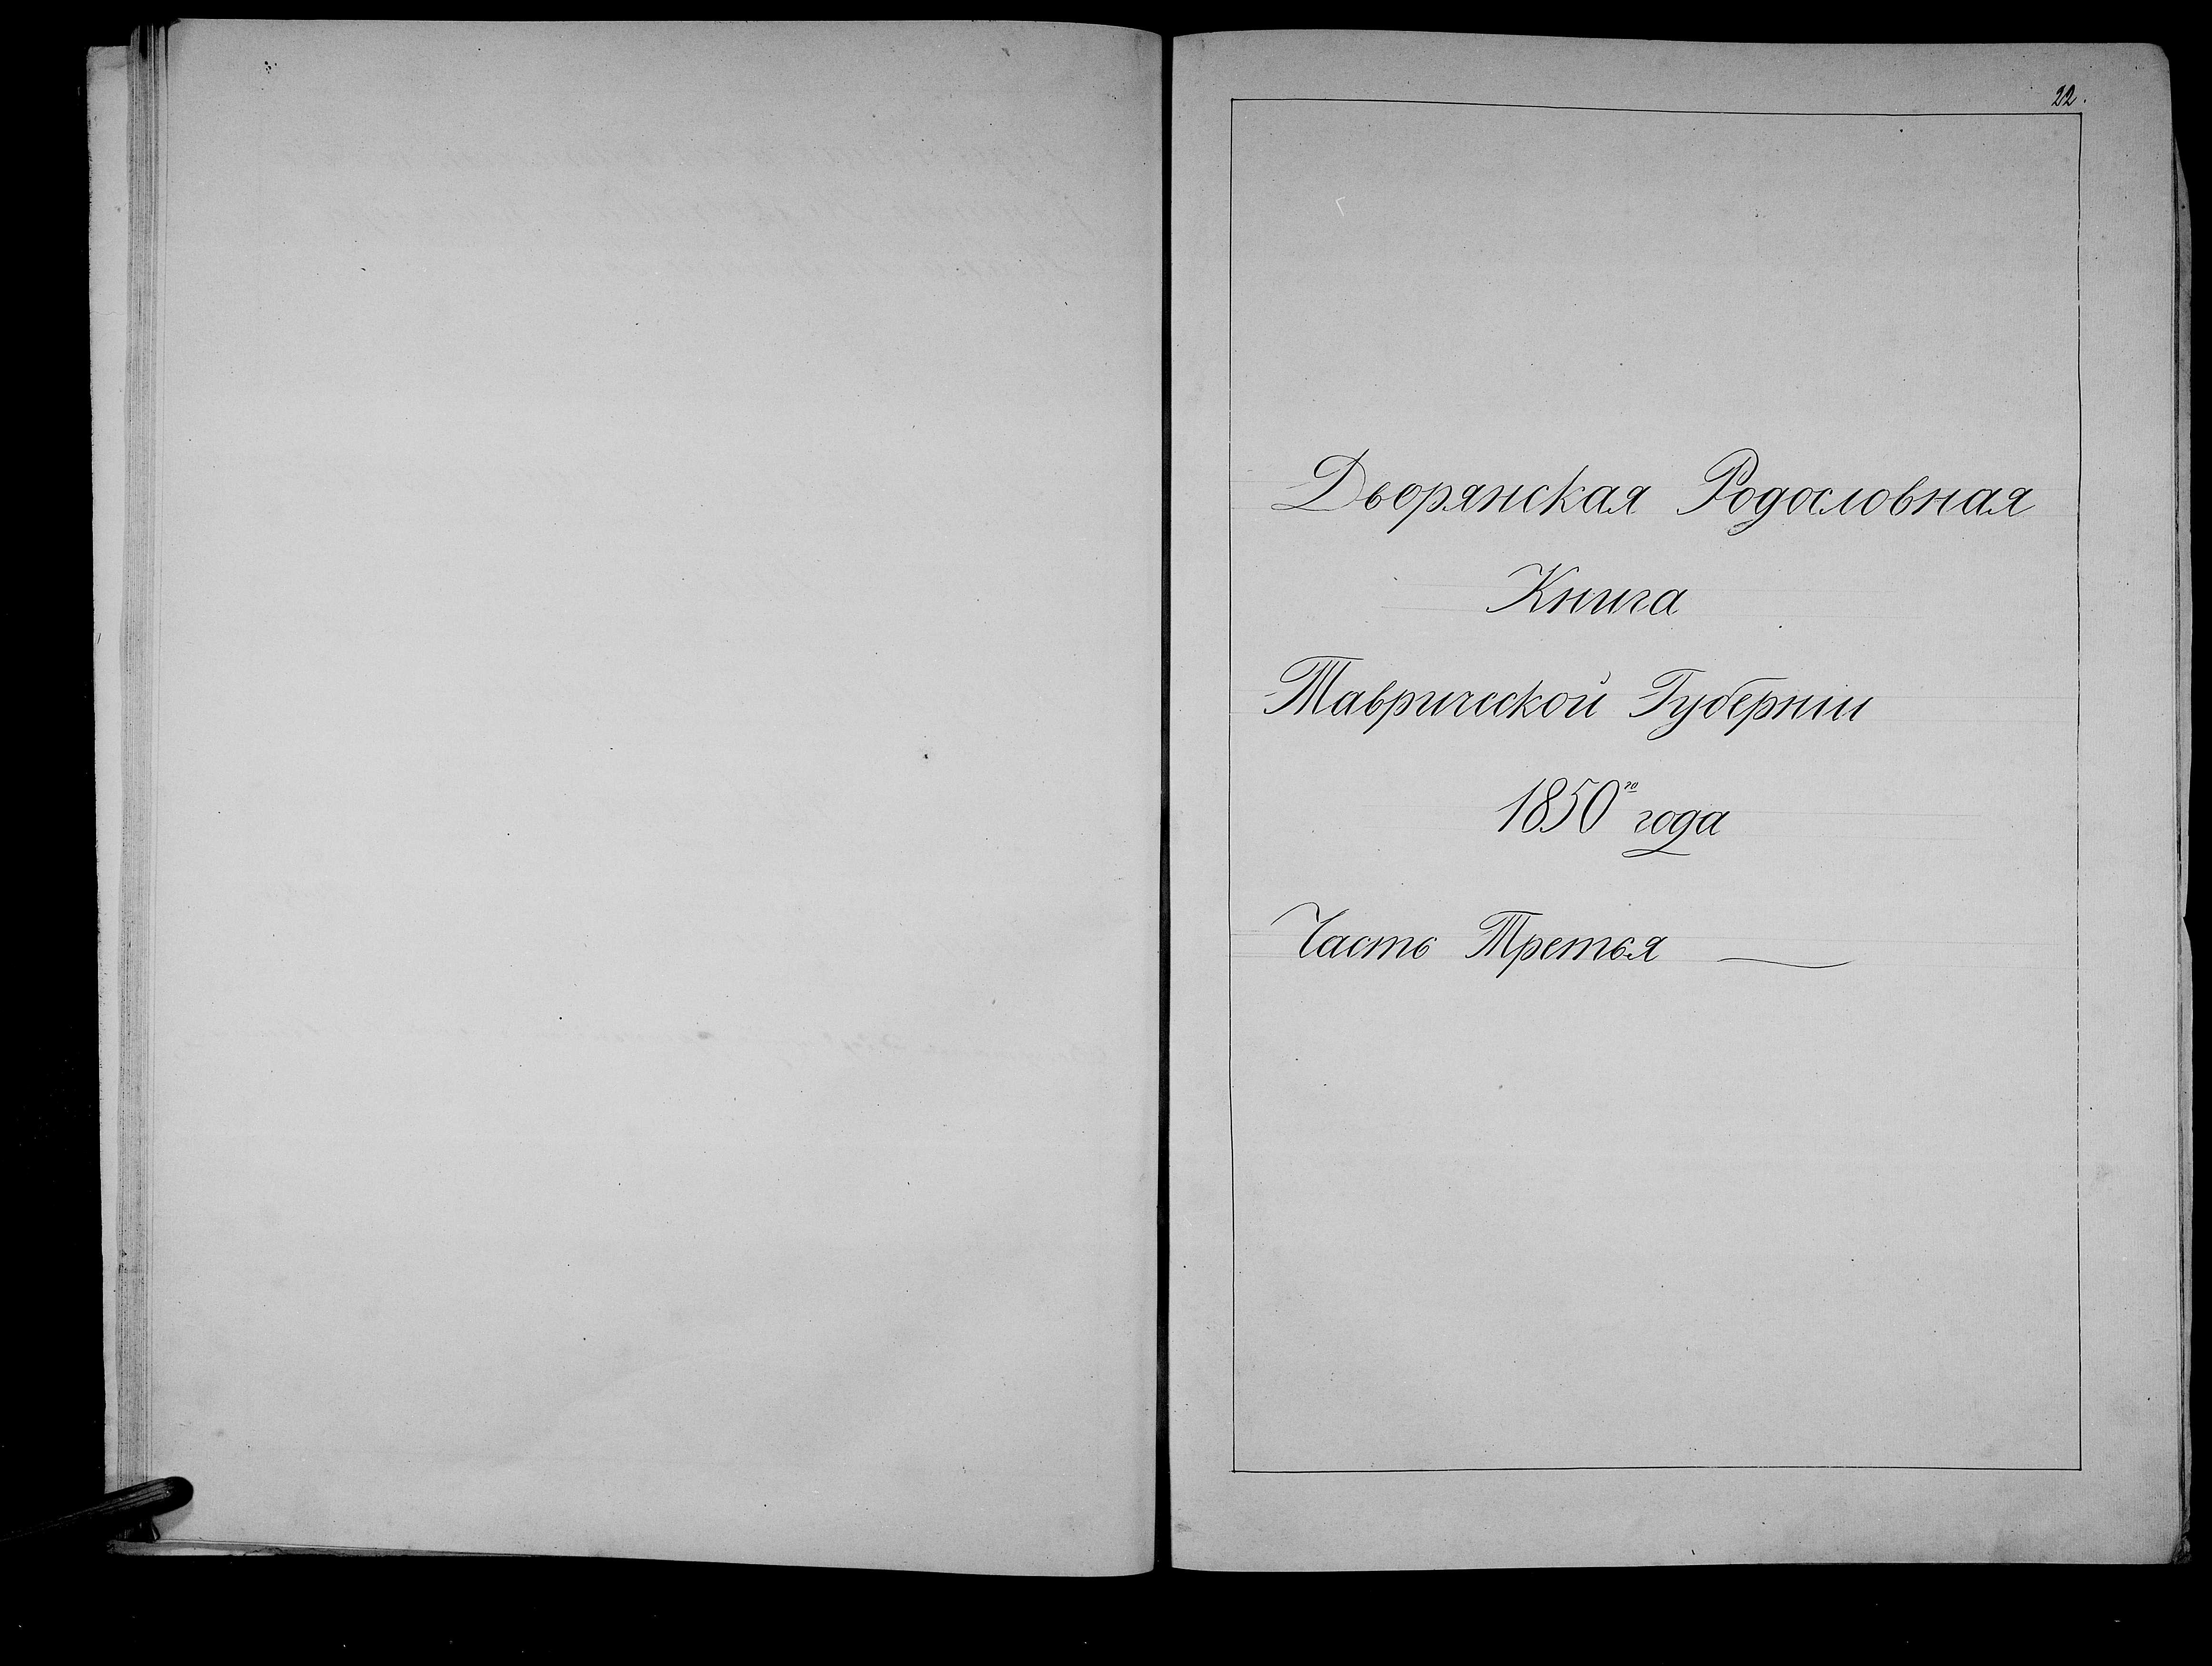 22.
Дворянская Родословная
Книга
Таврической Губерніи
1850го года
Часть Третья